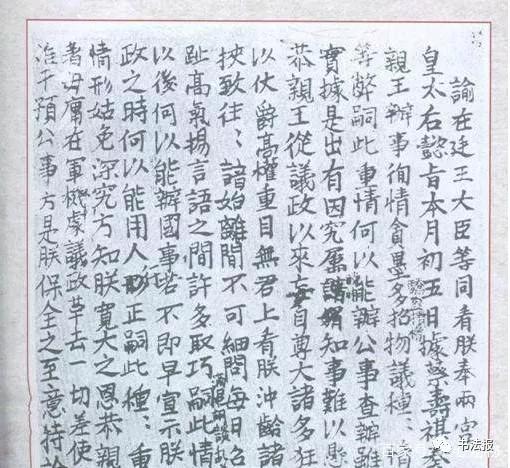 諭在廷王大臣等同看朕奉兩宮
皇太后懿旨本月初五日據蔡壽祺奏
親王辦事徇情貪墨多招物議種:
等弊嗣此重情何以能辦公事查辦雖
實據是出有因究屬 昧知事難以懸
恭親王從議政以來妄自尊大諸多狂
以仗爵高權重目無君上看朕沖齡諸
挾致往:諳始離間不可細問每日召
趾高氣揚言語之間許多取巧 胡談 嗣此情
以後何以能辦國事若不即早宣示朕
政之時何以能用人行正嗣此種:重
情形姑免深究方知朕寬大之恩恭親
着毋庸在軍機處議政革去一切差使
准干預公事方是朕保全之至意特
书法报